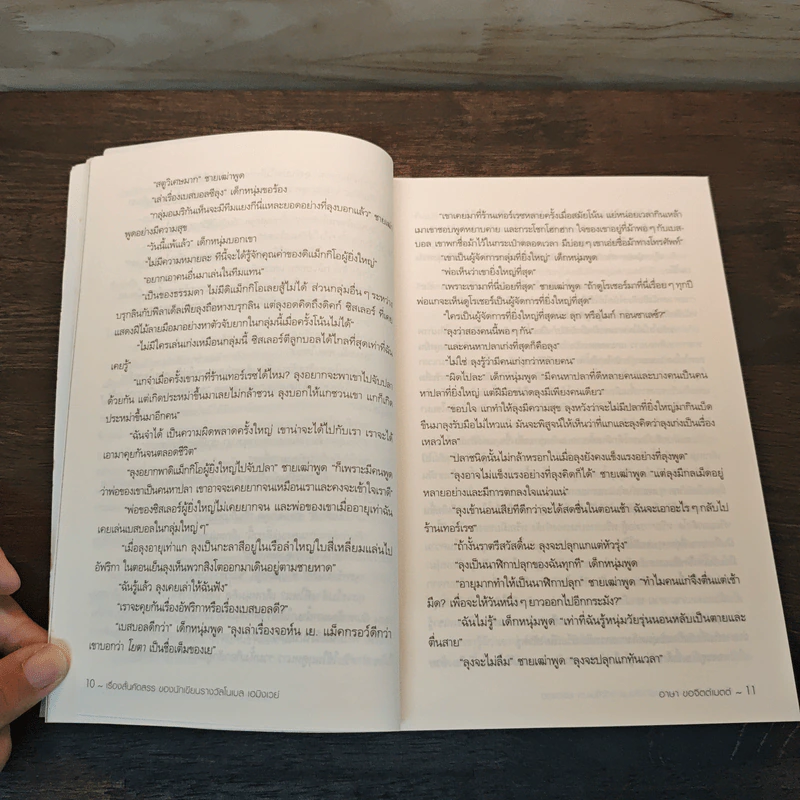 "สตูวิเศษมาก" ชายเฒ่าพูด
"เล่าเรื่องเบสบอลซีลุง" เด็กหนุ่มขอร้อง
"กลุ่มอเมริกันเห็นจะมีทีมแยงกีนี่แหละยอดอย่างที่ลุงบอกแล้ว" ชายเฒ่า
พูดอย่างมีความสุข
"วันนี้แพ้แล้ว" เด็กหนุ่มบอกเขา
"ไม่มีความหมายละ ทีนี้จะได้รู้จักคุณค่าของดิแม็กกิโอผู้ยิ่งใหญ่"
"อยากเอาคนอื่นมาเล่นในทีมแทน"
"เป็นของธรรมดา ไม่มีดิแม็กกิโอเลยสู้ไม่ได้ ส่วนกลุ่มอื่นๆ ระหว่าง
บรุกลินกับฟิลาเด็ลเฟียลุงถือหางบรุกลิน แต่ลุงอดคิดถึงดิคก์ ซิสเลอร์ ที่เคย
แสดงฝีไม้ลายมือมาอย่างหาตัวจับยากในกลุ่มนี้เมื่อครั้งโน้นไม่ได้"
"ไม่มีใครเล่นเก่งเหมือนกลุ่มนี้ ซิสเลอร์ตีลูกบอลได้ไกลที่สุดเท่าที่ฉัน
เคยรู้"
"แกจำเมื่อครั้งเขามาที่ร้านเทอร์เรซได้ไหม? ลุงอยากจะพาเขาไปจับปลา
ด้วยกัน แต่เกิดประหม่าขึ้นมาเลยไม่กล้าชวน ลุงบอกให้แกชวนเขา แกก็เกิด
ประหม่าขึ้นมาอีกคน"
"ฉันจำได้ เป็นความผิดพลาดครั้งใหญ่ เขาน่าจะได้ไปกับเรา เราจะได้
เอามาคุยกันจนตลอดชีวิต"
"ลุงอยากพาดิแม็กกิโอผู้ยิ่งใหญ่ไปจับปลา" ชายเฒ่าพูด "ก็เพราะมีคนพูด
ว่าพ่อของเขาเป็นคนหาปลา เขาอาจจะเคยยากจนเหมือนเราและคงจะเข้าใจเราดี"
"พ่อของซิสเลอร์ผู้ยิ่งใหญ่ไม่เคยยากจน และพ่อของเขาเมื่ออายุเท่าฉัน
เคยเล่นเบสบอลในกลุ่มใหญ่ๆ"
"เมื่อลุงอายุเท่าแก ลุงเป็นกะลาสีอยู่ในเรือลำใหญ่ใบสี่เหลี่ยมแล่นไป
อัฟริกา ในตอนเย็นลุงเห็นพวกสิงโตออกมาเดินอยู่ตามชายหาด"
"ฉันรู้แล้ว ลุงเคยเล่าให้ฉันฟัง"
"เราจะคุยกันเรื่องอัฟริกาหรือเรื่องเบสบอลดี?"
"เบสบอลดีกว่า" เด็กหนุ่มพูด "ลุงเล่าเรื่องจอห์น เย. แม็คกรอว์ดีกว่า
เขาบอกว่า โยตา เป็นชื่อเต็มของเย"
10 – เรื่องสั้นคัดสรร ของนักเขียนรางวัลโนเบล เฮมิงเวย์
"เขาเคยมาที่ร้านเทอร์เรซหลายครั้งเมื่อสมัยโน้น แย่หน่อยเวลากินเหล้า
เมาเขาชอบพูดหยาบคาย และกระโชกโฮกฮาก ใจของเขาอยู่ที่ม้าพอๆ กับเบส-
บอล เขาพกชื่อม้าไว้ในกระเป๋าตลอดเวลา มีบ่อยๆ เขาเอ่ยชื่อม้าทางโทรศัพท์"
"เขาเป็นผู้จัดการกลุ่มที่ยิ่งใหญ่" เด็กหนุ่มพูด
"พ่อเห็นว่าเขายิ่งใหญ่ที่สุด"
"เพราะเขามาที่นี่บ่อยที่สุด" ชายเฒ่าพูด "ถ้าดูโรเชอร์มาที่นี่เรื่อยๆ ทุกปี
พ่อแกจะเห็นดูโรเชอร์เป็นผู้จัดการที่ยิ่งใหญ่ที่สุด"
"ใครเป็นผู้จัดการที่ยิ่งใหญ่ที่สุดนะ ลุก หรือไมก์ กอนซาเลซ?"
"ลุงว่าสองคนนี้พอๆ กัน"
"และคนหาปลาเก่งที่สุดก็คือลุง"
"ไม่ใช่ ลุงรู้ว่ามีคนเก่งกว่าหลายคน"
"ผิดไปละ" เด็กหนุ่มพูด "มีคนหาปลาที่ดีหลายคนและบางคนเป็นคน
หาปลาที่ยิ่งใหญ่ แต่ฝีมือขนาดลุงมีเพียงคนเดียว"
"ขอบใจ แกทำให้ลุงมีความสุข ลุงหวังว่าจะไม่มีปลาที่ยิ่งใหญ่มากินเบ็ด
ขืนมาลุงรับมือไม่ไหวแน่ มันจะพิสูจน์ให้เห็นว่าที่แกและลุงคิดว่าลุงเก่งเป็นเรื่อง
เหลวไหล"
"ปลาชนิดนั้นไม่กล้าหรอกในเมื่อลุงยังคงแข็งแรงอย่างที่ลุงพูด"
"ลุงอาจไม่แข็งแรงอย่างที่ลุงคิดก็ได้" ชายเฒ่าพูด "แต่ลุงมีกลเม็ดอยู่
หลายอย่างและมีการตกลงใจแน่วแน่"
"ลุงเข้านอนเสียทีดีกว่าจะได้สดชื่นในตอนเช้า ฉันจะเอาอะไรๆ กลับไป
ร้านเทอร์เรซ"
"ถ้างั้นราตรีสวัสดิ์นะ ลุงจะปลุกแกแต่หัวรุ่ง"
"ลุงเป็นนาฬิกาปลุกของฉันทุกที" เด็กหนุ่มพูด
"อายุมากทำให้เป็นนาฬิกาปลุก" ชายเฒ่าพูด "ทำไมคนแก่จึงตื่นแต่เช้า
มืด? เพื่อจะให้วันหนึ่งๆ ยาวออกไปอีกกระมัง?"
"ฉันไม่รู้" เด็กหนุ่มพูด "เท่าที่ฉันรู้หนุ่มวัยรุ่นนอนหลับเป็นตายและ
ตื่นสาย"
"ลุงจะไม่ลืม" ชายเฒ่าพูด "ลุงจะปลุกแกทันเวลา"
อาษา ขอจิตต์เมตต์ – 11